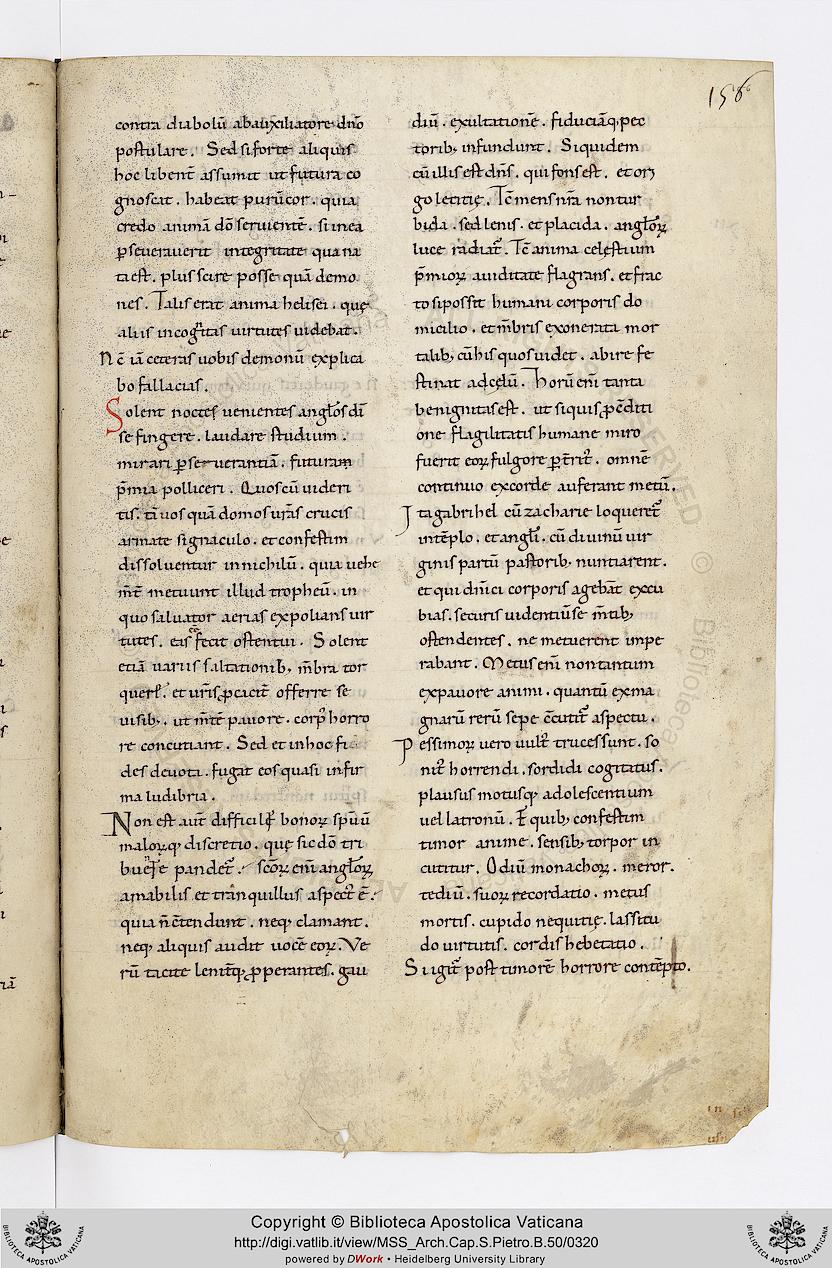 156
contra diabolū abauxiliatore dn̄o
postulare. Sed si forte aliquis
hoc libent̄ assumit ut futura co
gnoscat. habeat purū cor. quia
credo animā dō seruientē. si in ea
ꝑseuerauerit integritate qua na
ta est. plus scire posse quā demo
nes. Talis erat anima helisei. quę
aliis incognitas uirtutes uidebat.
Nc̄ iā ceteras uobis demonū explica
bo fallacias.
Solent noctes uenientes angl̄os dī
se fingere. laudare studium.
mirari ꝑseuerantiā. futuram
p̄mia polliceri. Quos cū uideri
tis. tā uos quā domos ur̄as crucis
armate signaculo. et confestim
dissoluentur in nichilū. quia uehe
m̄t̄ metuunt illud tropheū. in
quo saluator aerias expolians uir
tutes. eas fecit ostentui. Solent
etiā variis saltationib; m̄bra tor
querl̄. et ur̄is ꝓcacit̄ offerre se
uisib; ut m̄tē pauore. corp̄ horro
re concutiant. Sed et in hoc fi
des deuota. fugat eos quasi infir
ma ludibria.
Non est aut̄ difficilę bonoꝝ sp̄uū
maloꝝq; discretio. quę sic dō tri
buēte pandet̄. sc̄oꝝ eni angl̄oꝝ
amabilis et tranquillus aspect̄ ē.
quia n̄ c̄tendunt. neq; clamant.
neq; aliquis audit uocē eoꝝ. Ve
rū tacite lenit̄q; ꝓperantes. gau
diū. exultationē. fiduciāq; pec
torib; infundunt. Siquidem
cū illis est dn̄s. qui fons est. et ori
go letitię. Tc̄ mens nr̄a non tur
bida. sed lenis. et placida. angl̄oꝝ
luce radiat̄. Tc̄ anima celęstium
p̄mioꝝ auiditate flagrans. et frac
to si possit humani corporis do
micilio. et m̄bris exonerata mor
talib; cū his quos uidet. abire fe
stinat ad cęlū. Horū eni tanta
benignitas est. ut siquis ꝓ c̄diti
one flagilitatis humane miro
fuerit eoꝝ fulgore ꝑt̄rit̄. omnē
continuo ex corde auferant metū.
Ita gabrihel cū zacharie loqueret̄
in tēplo. et angl̄i. cū diuinū uir
ginis partū pastorib; nuntiarent.
et qui dn̄ici corporis agebāt excu
bias. securis uidentiū se m̄tib;
ostendentes. ne metuerent impe
rabant. Metus eni non tantum
ex pauore animi. quantū ex ma
gnarū rerū sepe c̄cutit̄ aspectu.
Pessimoꝝ uero uult̄ truces sunt. so
nit̄ horrendi. sordidi cogitatus.
plausus motusq; adolescentium
uel latronū. E quib; confestim
timor anime. sensib; torpor in
cutitur. Odiū monachoꝝ. meror.
tediū. suoꝝ recordatio. metus
mortis. cupido nequitię. lassitu
do uirtutis. cordis hebetatio.
Si igit̄ post timorē horrore contēpto.
Copyright © Biblioteca Apostolica Vaticana
http://digi.vatlib.it/view/MSS_Arch.Cap.S.Pietro.B.50/0320
powered by DWork • Heidelberg University Library